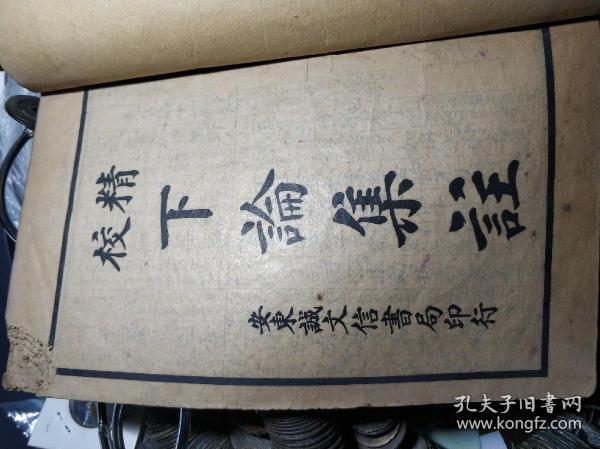 精校
下論集註
安東誠文信書局印行
孔夫子旧書网
www.kongfz.com